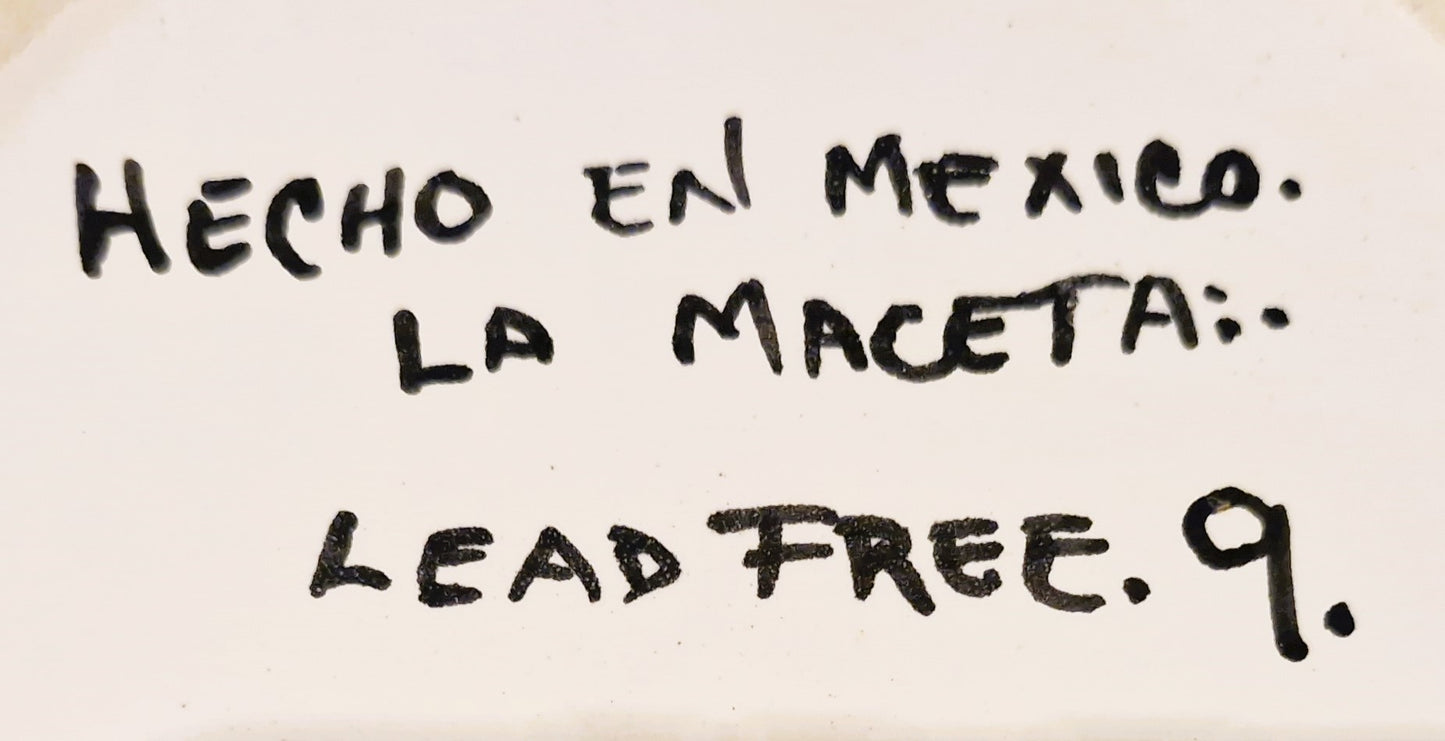 HECHO EN MEXICO.
LA MACETA:.
LEAD FREE. 9.